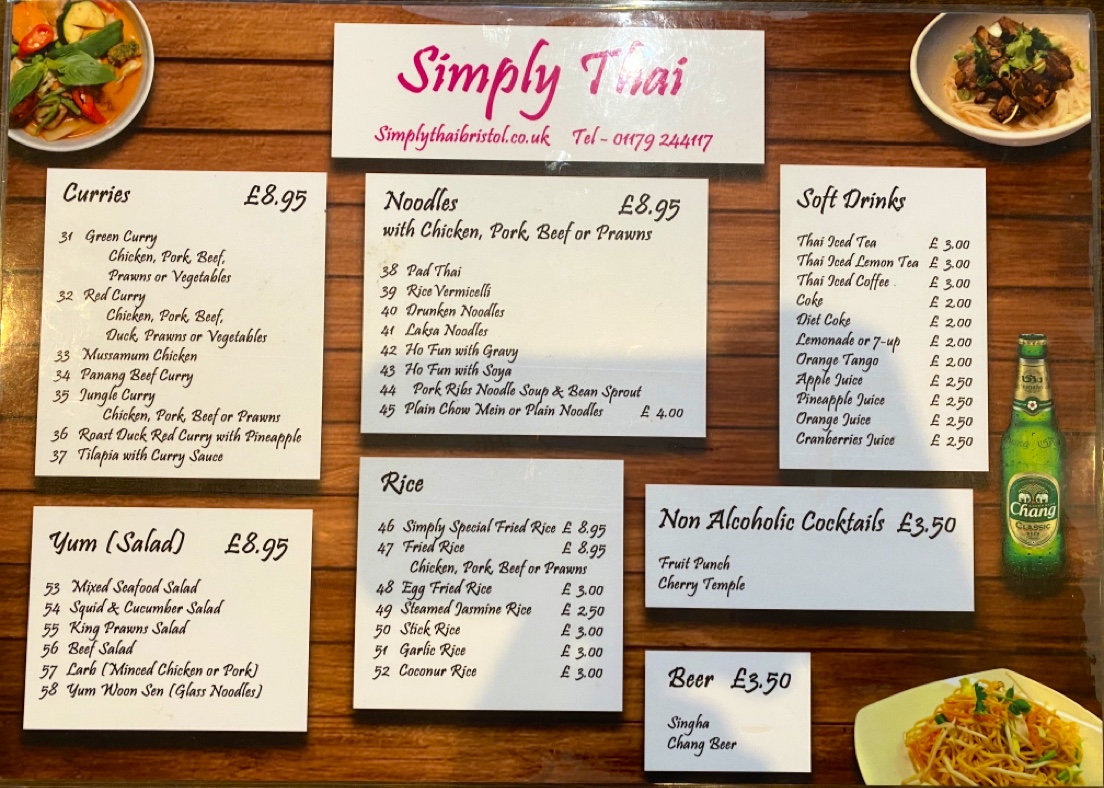 Simply Thai
Simplythaibristol.co.uk Tel - 01179 244117
Curries £8.95
31 Green Curry
Chicken, Pork, Beef,
Prawns or Vegetables
32 Red Curry
Chicken, Pork, Beef,
Duck, Prawns or Vegetables
33 Mussamum Chicken
34 Panang Beef Curry
35 Jungle Curry
Chicken, Pork, Beef or Prawns
36 Roast Duck Red Curry with Pineapple
37 Tilapia with Curry Sauce
Yum (Salad) £8.95
53 Mixed Seafood Salad
54 Squid & Cucumber Salad
55 King Prawns Salad
56 Beef Salad
57 Larb (Minced Chicken or Pork)
58 Yum Woon Sen (Glass Noodles)
Noodles £8.95
with Chicken, Pork, Beef or Prawns
38 Pad Thai
39 Rice Vermicelli
40 Drunken Noodles
41 Laksa Noodles
42 Ho Fun with Gravy
43 Ho Fun with Soya
44 Pork Ribs Noodle Soup & Bean Sprout
45 Plain Chow Mein or Plain Noodles £ 4.00
Rice
46 Simply Special Fried Rice £ 8.95
47 Fried Rice £ 8.95
Chicken, Pork, Beef or Prawns
48 Egg Fried Rice £ 3.00
49 Steamed Jasmine Rice £ 2.50
50 Stick Rice £ 3.00
51 Garlic Rice £ 3.00
52 Coconur Rice £ 3.00
Soft Drinks
Thai Iced Tea £ 3.00
Thai Iced Lemon Tea £ 3.00
Thai Iced Coffee £ 3.00
Coke £ 2.00
Diet Coke £ 2.00
Lemonade or 7-up £ 2.00
Orange Tango £ 2.00
Apple Juice £ 2.50
Pineapple Juice £ 2.50
Orange Juice £ 2.50
Cranberries Juice £ 2.50
Non Alcoholic Cocktails £3.50
Fruit Punch
Cherry Temple
Beer £3.50
Singha
Chang Beer
Chang
CLASSIC